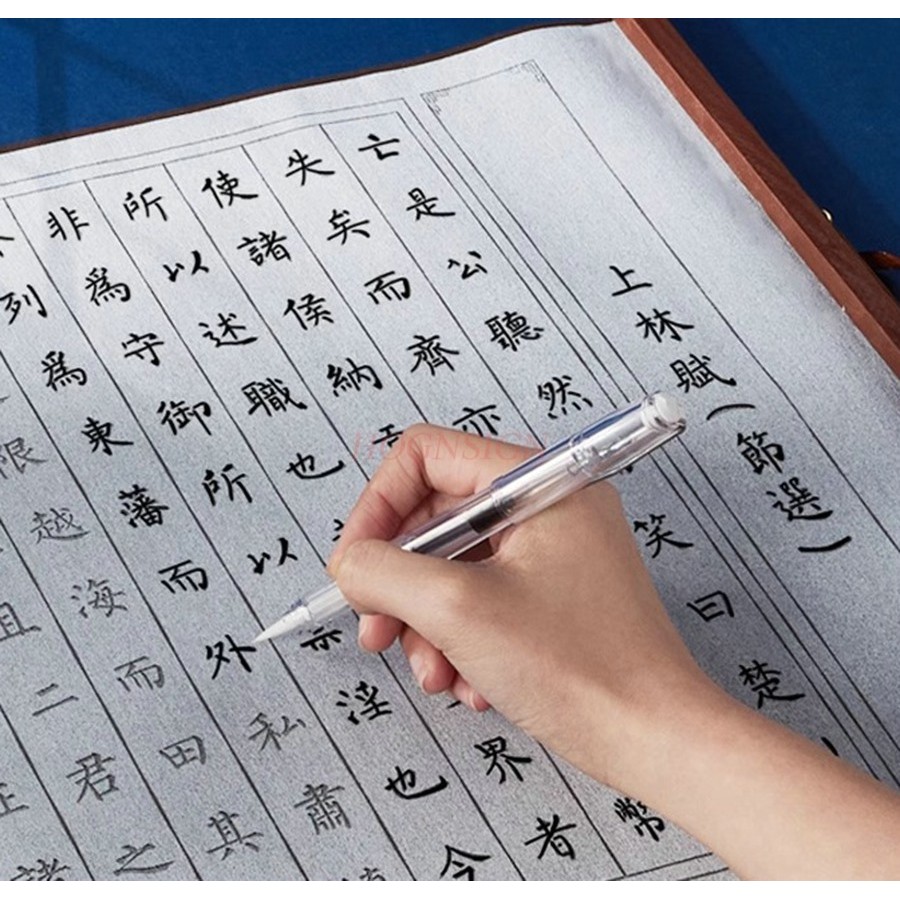 上林賦(節選)
亡是公聽然笑曰楚
失矣而齊亦
使諸侯納幣
所以述職也界者
非爲守御所以淫也今
列爲東藩而外私肅
限越海而田其
且二君之
諸